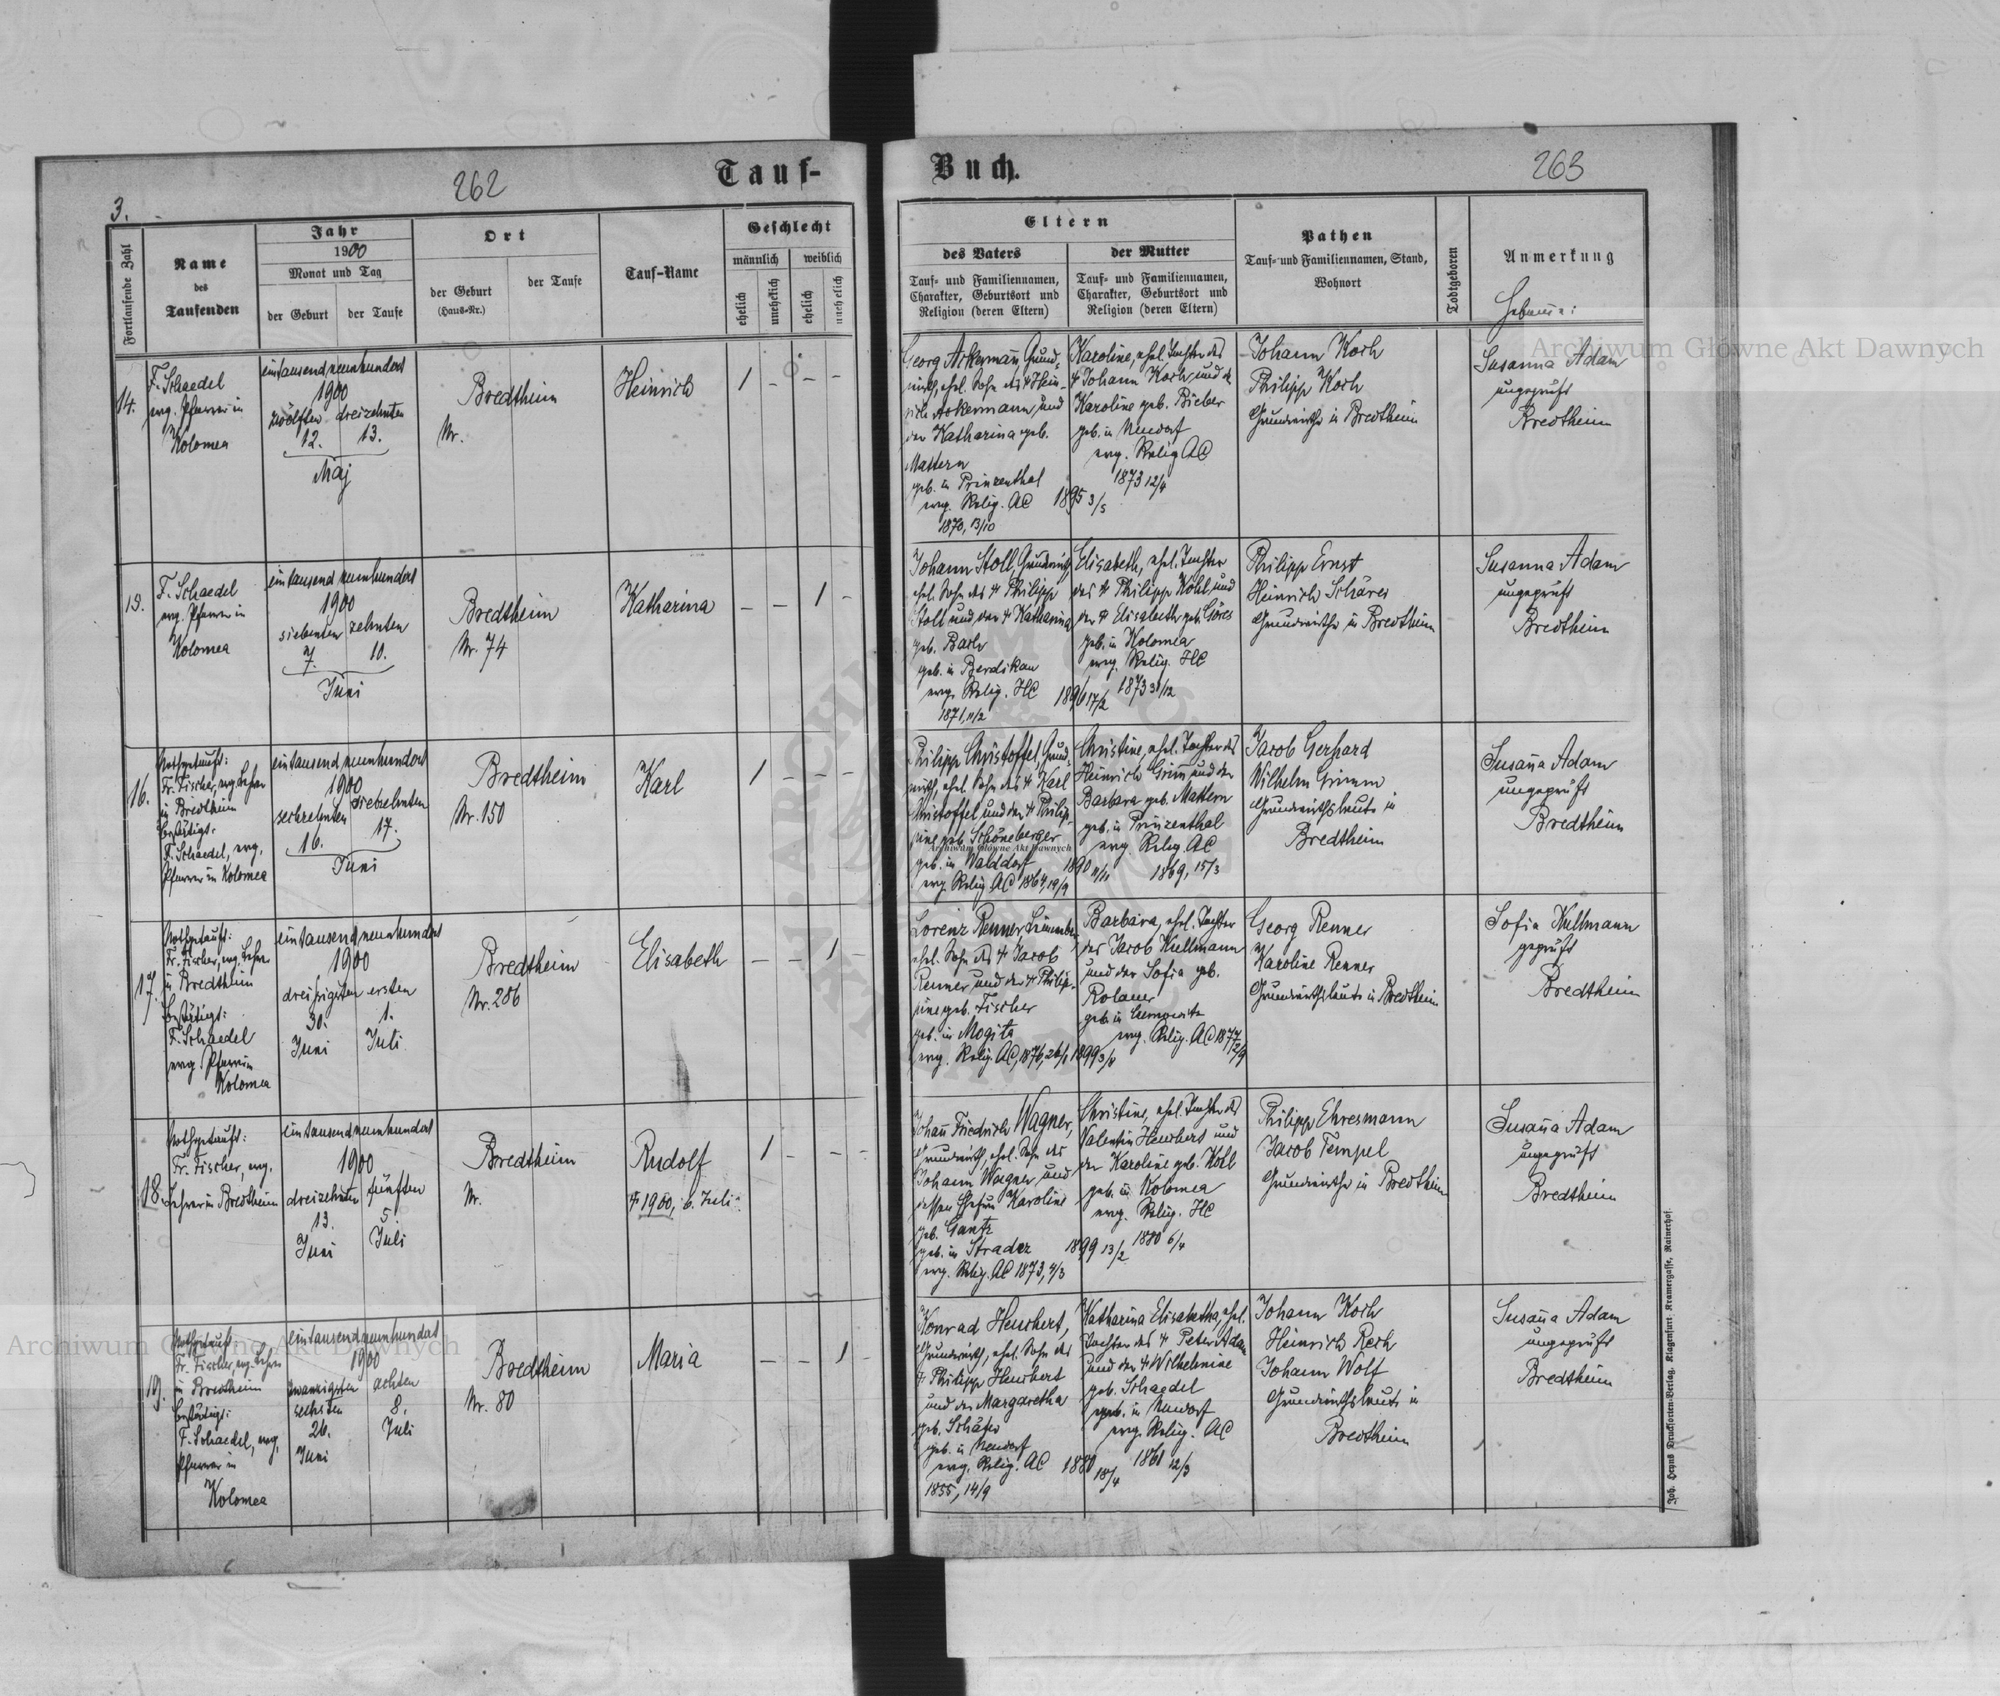 262
Tauf-
3.
Fortlaufende Zahl
Name
des
Taufenden
Jahr
1900
Monat und Tag
der Geburt
der Taufe
Ort
der Geburt
(Haus-Nr.)
der Taufe
Tauf-Name
Geschlecht
männlich
weiblich
ehelich
unehelich
ehelich
unehelich
14.
F. Schaedel
evg. Pfarrer in
Kolomea
eintausendneunhundert
1900
zwölften dreizehnten
12. 13.
Maj
Bredtheim
Nr.
Heinrich
1 - - -
15.
F. Schaedel
evg. Pfarrer in
Kolomea
eintausendneunhundert
1900
siebenten zehnten
7. 10.
Juni
Bredtheim
Nr. 74
Katharina
- - 1 -
16.
Nothgetauft:
Fr. Fischer, evg. Lehrer
in Bredtheim
bestätigt:
F. Schaedel, evg.
Pfarrer in Kolomea
eintausendneunhundert
1900
sechzehnten siebzehnten
16. 17.
Juni
Bredtheim
Nr. 150
Karl
1 - - -
17.
Nothgetauft:
Fr. Fischer, evg. Lehrer
in Bredtheim
bestätigt:
F. Schaedel
evg. Pfarrer in
Kolomea
eintausendneunhundert
1900
dreißigsten ersten
30. 1.
Juni Juli
Bredtheim
Nr. 286
Elisabeth
- - 1 -
18.
Nothgetauft:
Fr. Fischer, evg.
Lehrer in Bredtheim
eintausendneunhundert
1900
dreizehnten fünften
13. 5
Juni Juli
Bredtheim
Nr.
Rudolf
† 1900, 6. Juli
1 - - -
19.
Nothgetauft:
Fr. Fischer, evg. Lehrer
in Bredtheim
bestätigt:
F. Schaedel, evg.
Pfarrer in
Kolomea
eintausendneunhundert
1900
zwanzigsten achten
sechsten 8.
26. Juli
Juni
Bredtheim
Nr. 80
Maria
- - 1 -
Buch.
263
Eltern
des Vaters
Tauf- und Familiennamen,
Charakter, Geburtsort und
Religion (deren Eltern)
der Mutter
Tauf- und Familiennamen,
Charakter, Geburtsort und
Religion (deren Eltern)
Pathen
Tauf- und Familiennamen, Stand,
Wohnort
Todtgeboren
Anmerkung
Hebamme:
Georg Ackermann, Grund-
wirth, ehel. Sohn des † Hein-
rich Ackermann, und
der Katharina geb.
Mattern
geb. in Prinzenthal
evg. Relig. AC
1870, 13/10
1895 3/5
Karoline, ehel. Tochter des
† Johann Koch, und d.
Karoline geb. Bieber
geb. in Neudorf
evg. Relig AC
1873 12/4
Johann Koch
Philipp Koch
Grundwirthe in Bredtheim
Susanna Adam
ungeprüft
Bredtheim
Johann Stoll, Grundwirth
ehel. Sohn des † Philipp
Stoll und der † Katharina
geb. Bach
geb. in Berdikau
evg. Relig. HC
1871, 11/2
1896 17/2
Elisabeth, ehel. Tochter
des † Philipp Kohl und
der † Elisabeth geb. Göres
geb. in Kolomea
evg. Relig. HC
1873 31/12
Philipp Ernst
Heinrich Schärer
Grundwirthe in Bredtheim
Susanna Adam
ungeprüft
Bredtheim
Philipp Christoffel, Grund-
wirth, ehel. Sohn des † Karl
Christoffel und der † Philip-
pine geb. Schöneberger
geb. in Walddorf
evg. Relig AC 1864, 19/9
1890 11/11
Christine, ehel. Tochter des
Heinrich Grim und der
Barbara geb. Mattern
geb. in Prinzenthal
evg. Relig. AC
1869, 15/3
Jacob Gerhard
Wilhelm Grimm
Grundwirthsleute in
Bredtheim
Susana Adam
ungeprüft
Bredtheim
Lorenz Renner,
ehel. Sohn des † Jacob
Renner und der † Philip-
pine geb. Fischer
geb. in Mogila
evg. Relig. AC, 1876, 26/1
1899 3/8
Barbara, ehel. Tochter
des Jacob Kullmann
und der Sofia geb.
Rolauer
geb. in Czernowitz
evg. Relig. AC 1877
2/9
Georg Renner
Karoline Renner
Grundwirthsleute in Bredtheim
Sofia Kullmann
geprüft
Bredtheim
Johann Friedrich Wagner,
Grundwirth, ehel. Sohn des
Johann Wagner, und
dessen Ehefrau Karoline
geb. Gantz
geb. in Stradcz
evg. Relig. AC 1873, 4/3
1899 13/2
Christine, ehel. Tochter des
Valentin Heuchert und
der Karoline geb. Kohl
geb. in Kolomea
evg. Relig. HC
1880 6/4
Philipp Ehresmann
Jacob Tempel
Grundwirthe in Bredtheim
Susana Adam
ungeprüft
Bredtheim
Konrad Heuchert,
Grundwirth, ehel. Sohn des
† Philipp Heuchert
und der Margaretha
geb. Schäfer
geb. in Neudorf
evg. Relig. AC
1855, 14/9
1880 18/4
Katharina Elisabetha, ehel.
Tochter des † Peter Adam
und der † Wilhelmine
geb. Schaedel
geb. in Neudorf
evg. Relig. AC
1861 12/3
Johann Koch
Heinrich Rech
Johann Wolf
Grundwirthsleute in
Bredtheim
Susana Adam
ungeprüft
Bredtheim
Joh. Heyns Drucksorten-Verlag, Klagenfurt. Kramergasse, Rainerhof.
Archiwum Główne Akt Dawnych
Archiwum Główne Akt Dawnych
Archiwum Główne Akt Dawnych